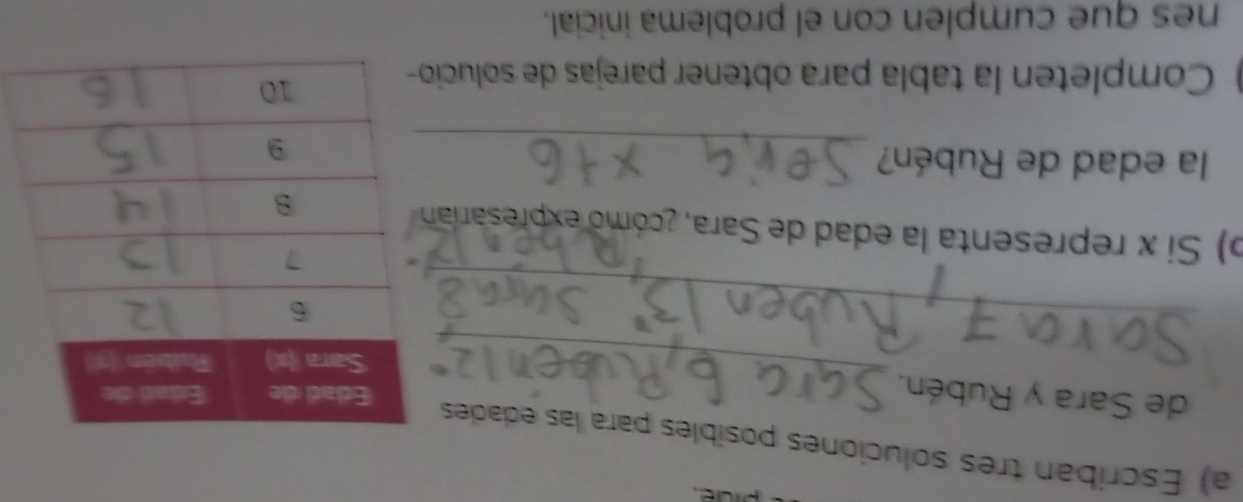 a) Escriban tres soluciones posibles para las edades
de Sara y Rubén. Sara 6, Rubén 12.
Sara 7, Ruben 13, Sara 8,
b) Si x representa la edad de Sara, ¿cómo expresarían
la edad de Rubén? Seria x+6
Completen la tabla para obtener parejas de solucio-
nes que cumplen con el problema inicial.
Edad de Sara (x) Edad de Rubén (y)
6 12
7 13
8 14
9 15
10 16